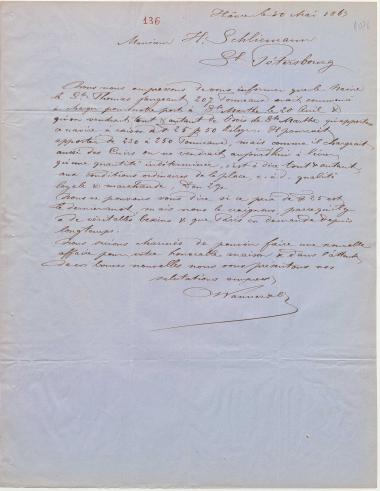 136
Hâvre le 20 Mai 1863
Monsieur H. Schliemann
St. Pétersbourg
Nous nous empressons de vous informer que le Navire
le St. Thomas jaugeant 207 Tonneaux avait commencé
à charger pour notre port à Ste. Marthe le 20 Avril &
qu'on vendrait, tout & autant de bois de Ste. Marthe qu'apportera
ce navire à raison de 25 p 50 kilogs. Il pourrait
apporter de 230 à 250 Tonneaux, mais comme il chargeait
aussi des Cuirs on ne vendrait, aujourd'hui à livrer
qu'une quantité indéterminée, c'est à dire tout & autant
aux conditions ordinaires de la place, c. à d. qualité
loyale & marchande,
Nous ne pouvons vous dire si ce prix de 25 est
le dernier mot, mais nous le craignons, parce qu'il y
a de véritables besoins & que Paris en demande depuis
longtemps.
Nous serions charmés de pouvoir faire une nouvelle
affaire pour votre honorable maison & dans l'attente
de vos bonnes nouvelles nous vous présentons nos
salutations sincères